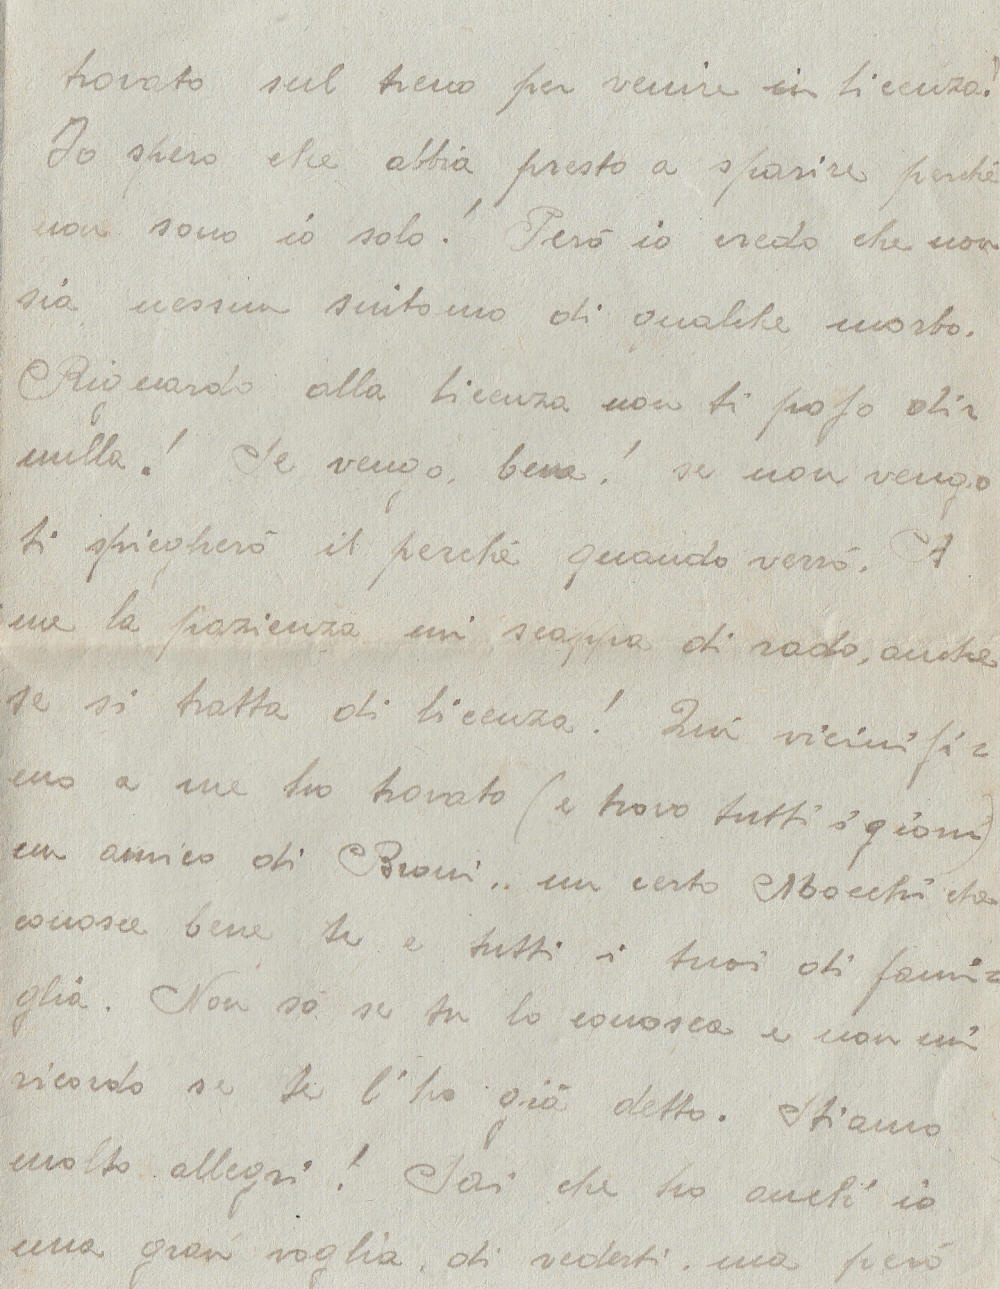 trovato sul treno per venire in licenza!
Io spero che abbia presto a sparire perchè
non sono io solo! Però io credo che non
sia nessun sintomo di qualche morbo.
Riguardo alla licenza non ti posso dir
nulla! Se vengo, bene! se non vengo
ti spiegherò il perchè quando verrò. A
me la pazienza mi scappa di rado, anche
se si tratta di licenza! Qui vicinissi=
mo a me ho trovato (e trovo tutti i giorni)
un amico di Broni.. un certo Mocchi che
conosce bene te e tutti i tuoi di fami=
glia. Non sò se tu lo conosca e non mi
ricordo se te l'ho già detto. Stiamo
molto allegri! Sai che ho anch' io
una gran voglia di vederti. ma però